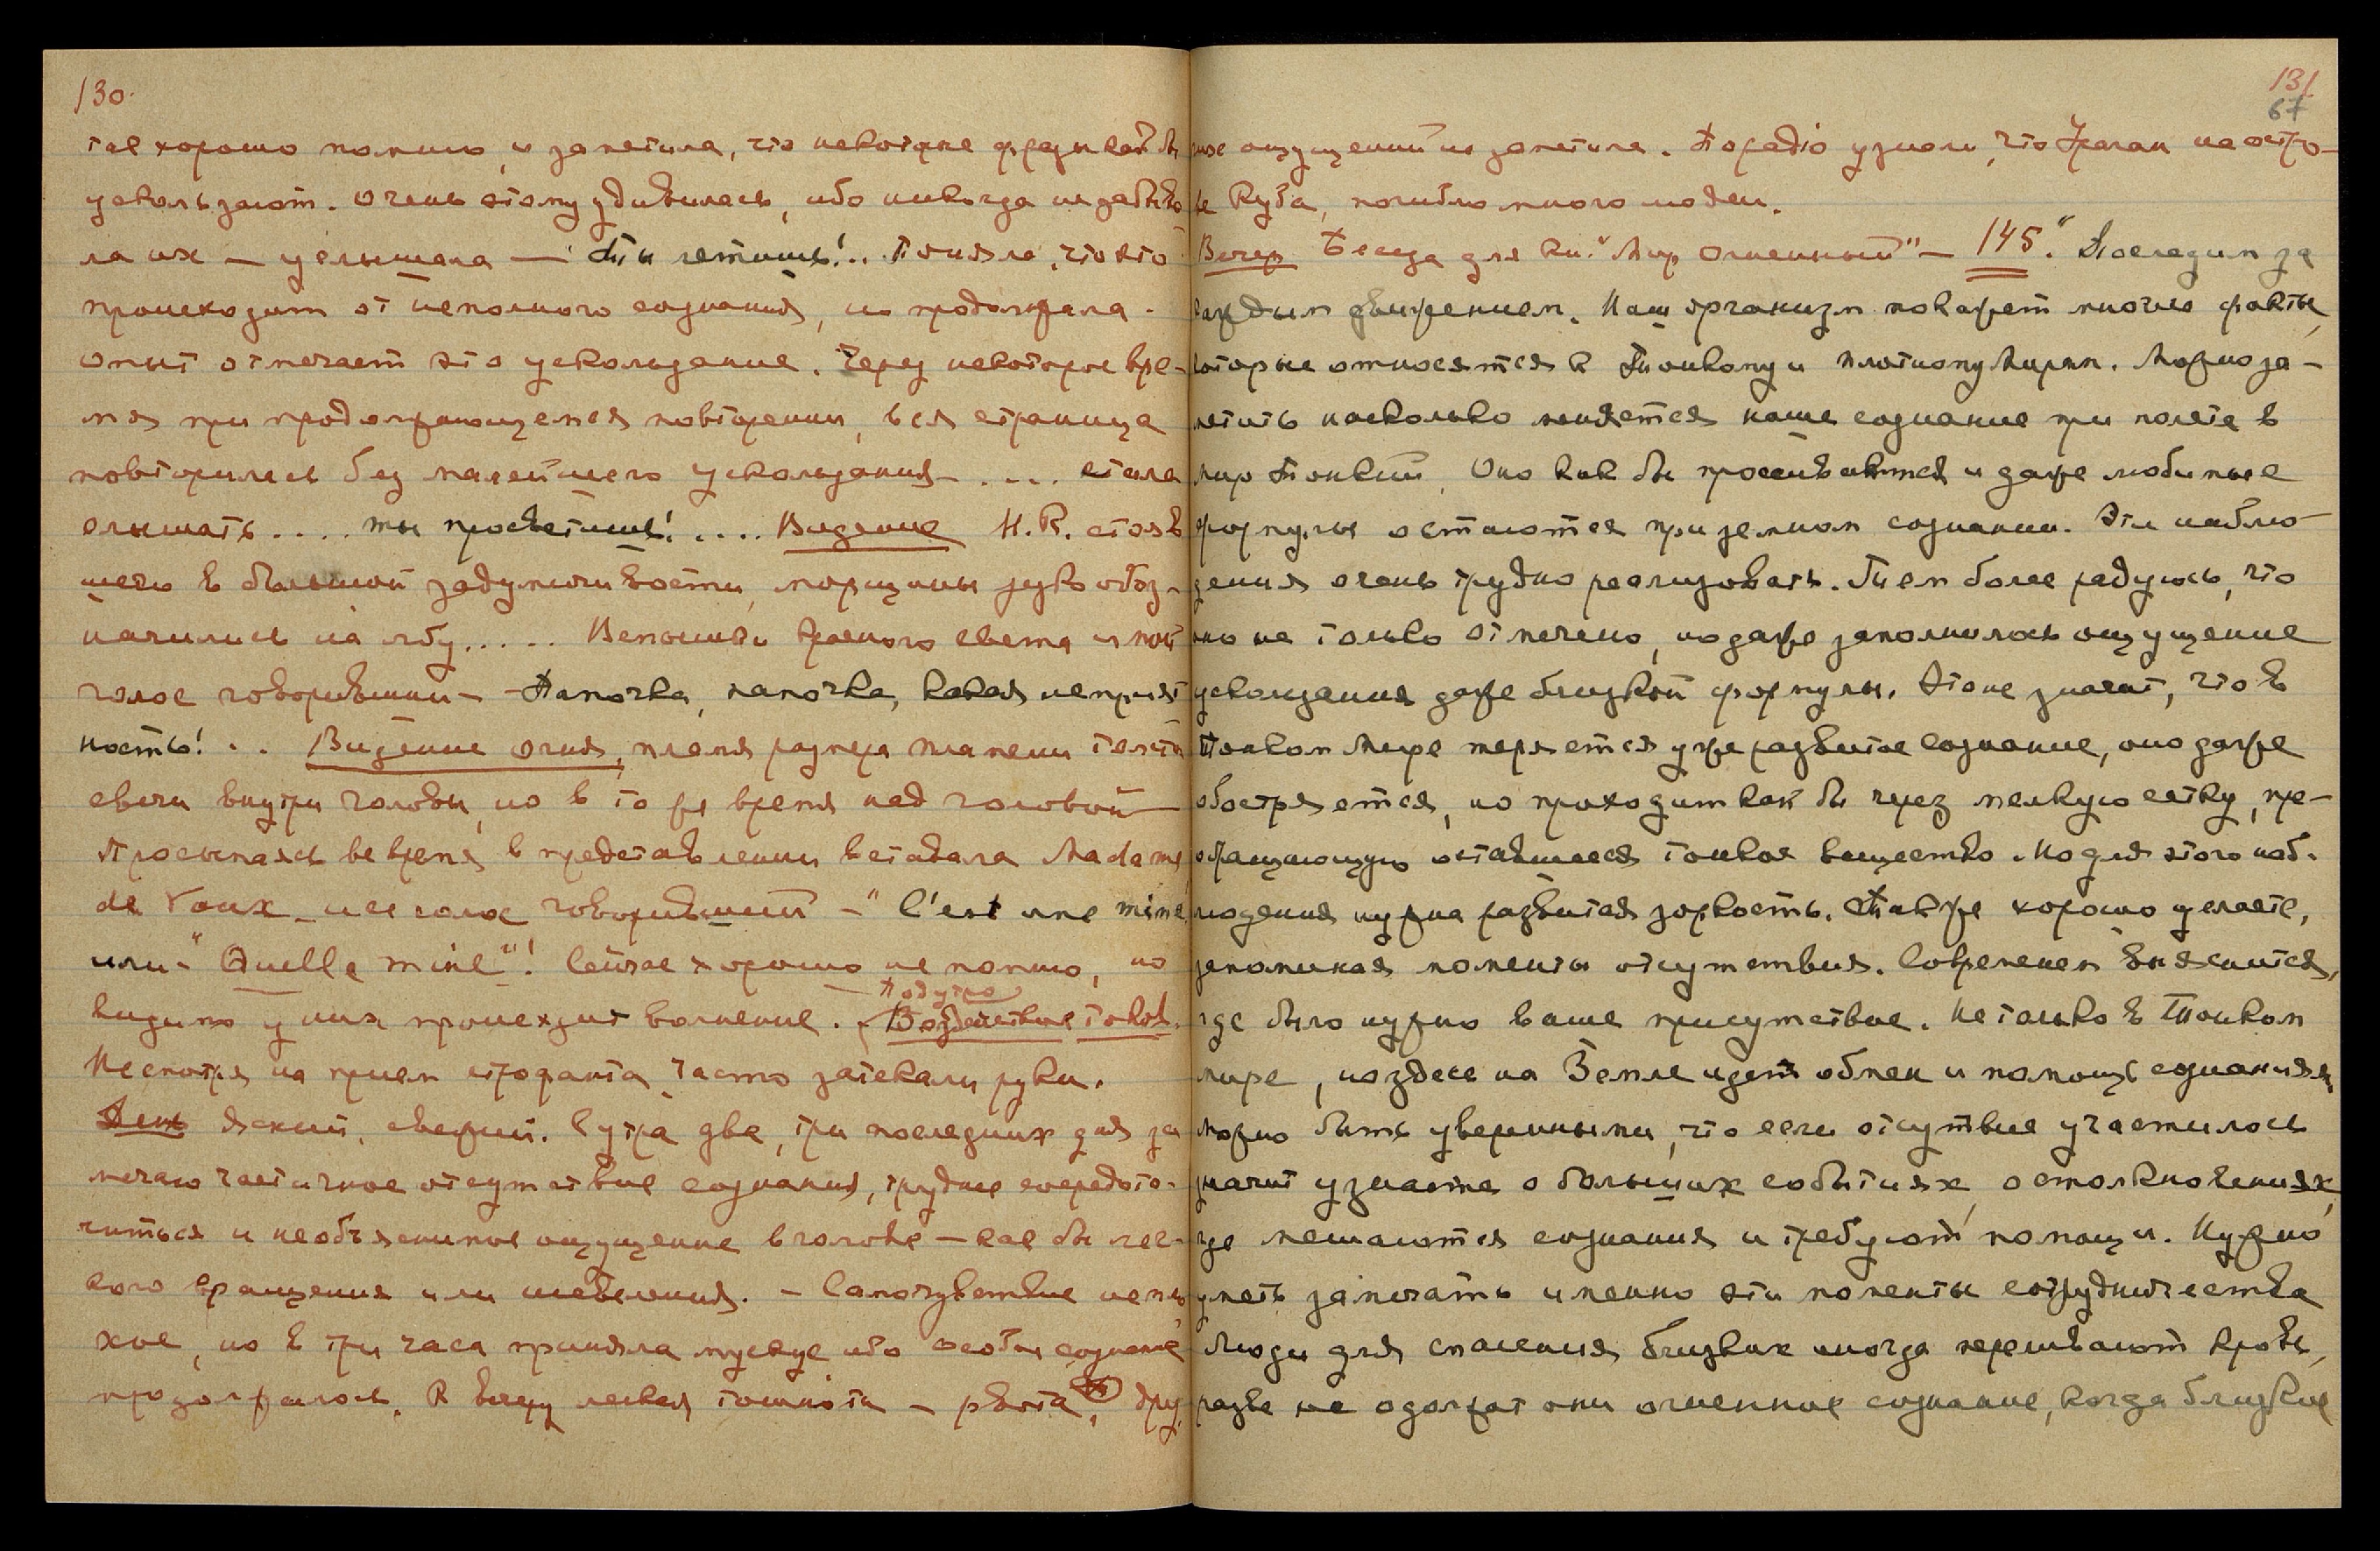 130.
так хорошо помню, и заметила, что некоторые фразы как бы
ускользают. Очень этому удивилась, ибо никогда не забыва
ла их — услышала — Ты летишь!.. Поняла, что это
происходит от неполного сознания, но продолжала.
Опыт отмечает это ускользание. Через некоторое вре-
мя при продолжающемся повторении, вся страница
повторилась без малейшего ускользания — .... стала
слышать .... ты просветишь! .... Видение Н.К. стояв
шего в большой задумчивости, морщины резко обоз-
начились на лбу..... Вспышки красного света и мой
голос говоривший — Папочка, папочка, какая неприят
ность! .. Видение огня, пламя размера пламени толстой
свечи внутри головы, но в то же время над головой —
Просыпаясь все время в представлении вставала Madame
de Vaux — и ее голос говоривший — "C'est une mine"
или — "Quelle mine"! Сейчас хорошо не помню, но
видимо у них происходит волнение. Воздействие токов.
Под утро
Несмотря на прием строфанта часто затекали руки.
День Ясный, свежий. С утра два, три последних дня за
мечаю частичное отсутствие сознания, труднее сосредото-
читься и необъяснимое ощущение в голове — как бы лег-
кого вращения или шевеления. — Самочувствие непло
хое, но в три часа приняла мускус ибо особое сознание
продолжалось. К вечеру легкая тошнота — рвота, дру
131
67
гих ощущений не заметила. По радіо узнали, что Ураган на остро-
ве Куба, погибло много людей.
Вечер Беседа для кн. "Мир Огненный" — 145." Последим за
каждым движением. Наш организм покажет многие факты,
которые относятся к Тонкому и плотному Мирам. Можно за-
метить насколько меняется наше сознание при полете в
мир Тонкий. Оно как бы просеивается и даже любимые
формулы остаются при земном сознании. Эти наблю-
дения очень трудно реализовать. Тем более радуюсь, что
оно не только отмечено, но даже запомнилось ощущение
ускользания даже близкой формулы. Это не значит, что в
Тонком Мире теряется уже развитое сознание, оно даже
обостряется, но проходит как бы через мелкую сетку, пре-
ображающую оставшееся тонкое вещество. Но для этого наб-
людения нужна развитая зоркость. Также хорошо делаете,
запоминая моменты отсутствия. Со временем выяснится,
где было нужно ваше присутствие. Не только в Тонком
мире, но здесь на Земле идет обмен и помощь сознаниям,
можно быть уверенными, что если отсутствие участилось
значит узнаете о больших событиях, о столкновениях,
где мешаются сознания и требуют помощи. Нужно
уметь замечать именно эти моменты сотрудничества
Люди для спасения близких иногда переливают кровь,
разве не одолжат они огненное сознание, когда близкие